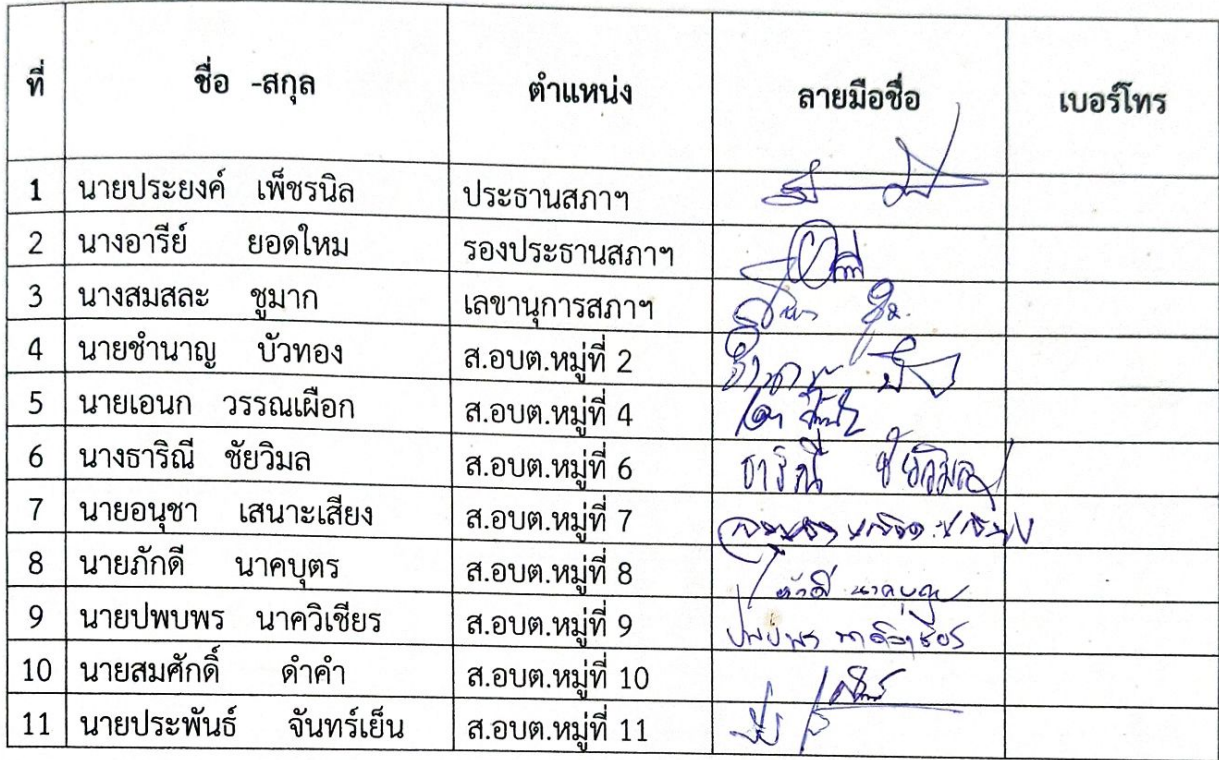 ที่ ชื่อ -สกุล ตำแหน่ง ลายมือชื่อ เบอร์โทร
1 นายประยงค์ เพ็ชรนิล ประธานสภาฯ
2 นางอารีย์ ยอดใหม รองประธานสภาฯ
3 นางสมสละ ชูมาก เลขานุการสภาฯ
4 นายชำนาญ บัวทอง ส.อบต.หมู่ที่ 2
5 นายเอนก วรรณเผือก ส.อบต.หมู่ที่ 4
6 นางธาริณี ชัยวิมล ส.อบต.หมู่ที่ 6 ธาริณี ชัยวิมล
7 นายอนุชา เสนาะเสียง ส.อบต.หมู่ที่ 7
8 นายภักดี นาคบุตร ส.อบต.หมู่ที่ 8 ภักดี นาคบุตร
9 นายปพบพร นาควิเชียร ส.อบต.หมู่ที่ 9 ปพบพร นาควิเชียร
10 นายสมศักดิ์ ดำคำ ส.อบต.หมู่ที่ 10
11 นายประพันธ์ จันทร์เย็น ส.อบต.หมู่ที่ 11